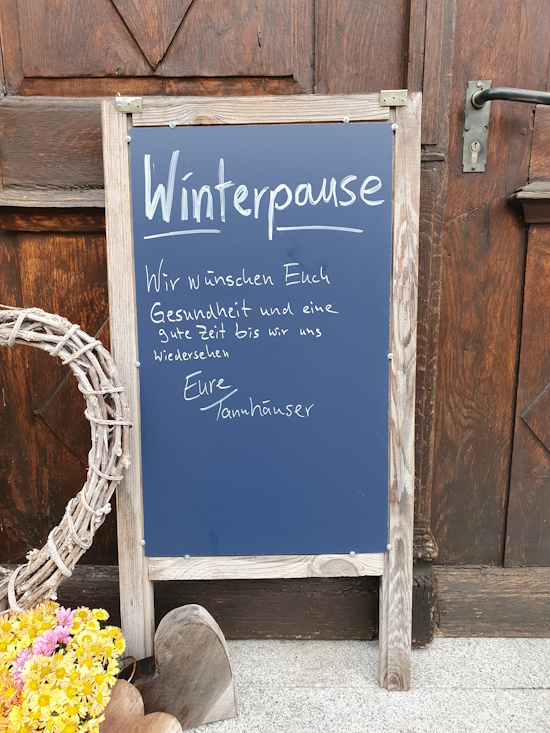 Winterpause
Wir wünschen Euch
Gesundheit und eine
gute Zeit bis wir uns
wiedersehen
Eure
Tannhäuser